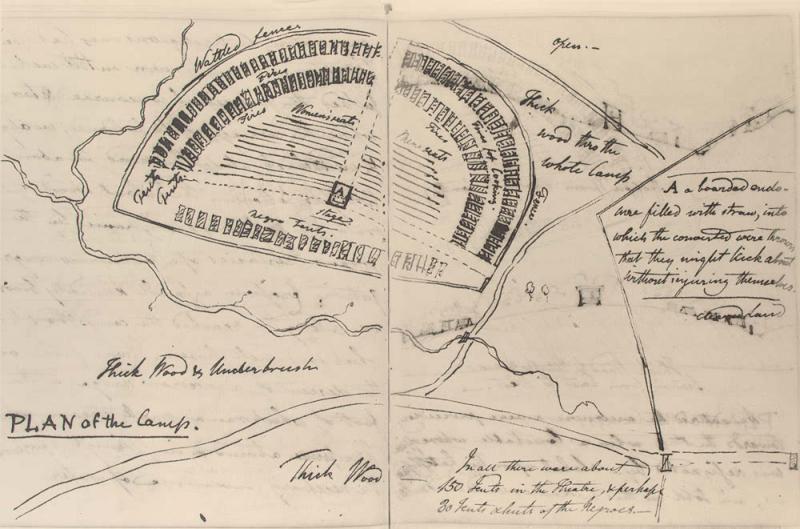 Open.—
Wattled fences
Fires
Fires
Womens seats
Mens seats
Fires
Fires for Cooking.
Fence.
Tents
Tents
A
Stage
Negro Tents.
Thick
wood thro the
whole Camp
A a boarded enclo-
sure filled with straw, into
which the converted were thrown
that they might kick about
without injuring themselves.
cleared land
Thick Wood & Underbrush
PLAN of the Camp.
Thick Wood
In all there were about
150 Tents in the Theatre, & perhaps
30 Tents & huts of the Negroes.—